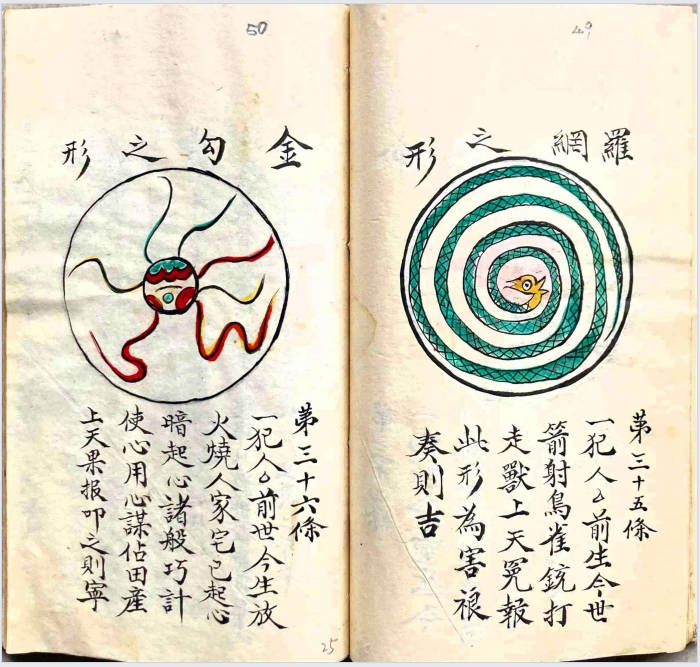 49
羅網之形
第三十五條
一犯人厶前生今世
箭射鳥雀銃打
走獸上天冤報
此形為害禳
奏則吉
50
金勾之形
第三十六條
一犯人厶前世今生放
火燒人家宅已起心
暗起心諸般巧計
使心用心謀佔田產
上天果报叩之則寧
25